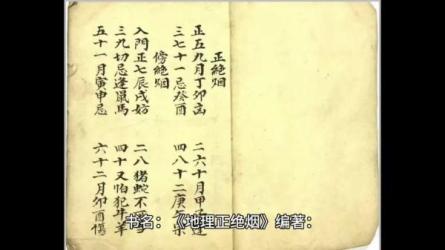 正絶烟
正五九月丁卯凶
二六十月甲逢
三七十一忌癸酉
四八十二庚
傍絶烟
入門正七辰戌妨
二八猪蛇不
三九切忌逢鼠馬
四十又怕犯牛羊
五十一月寅申忌
六十二月卯酉傷
书名：《地理正绝烟》编著：